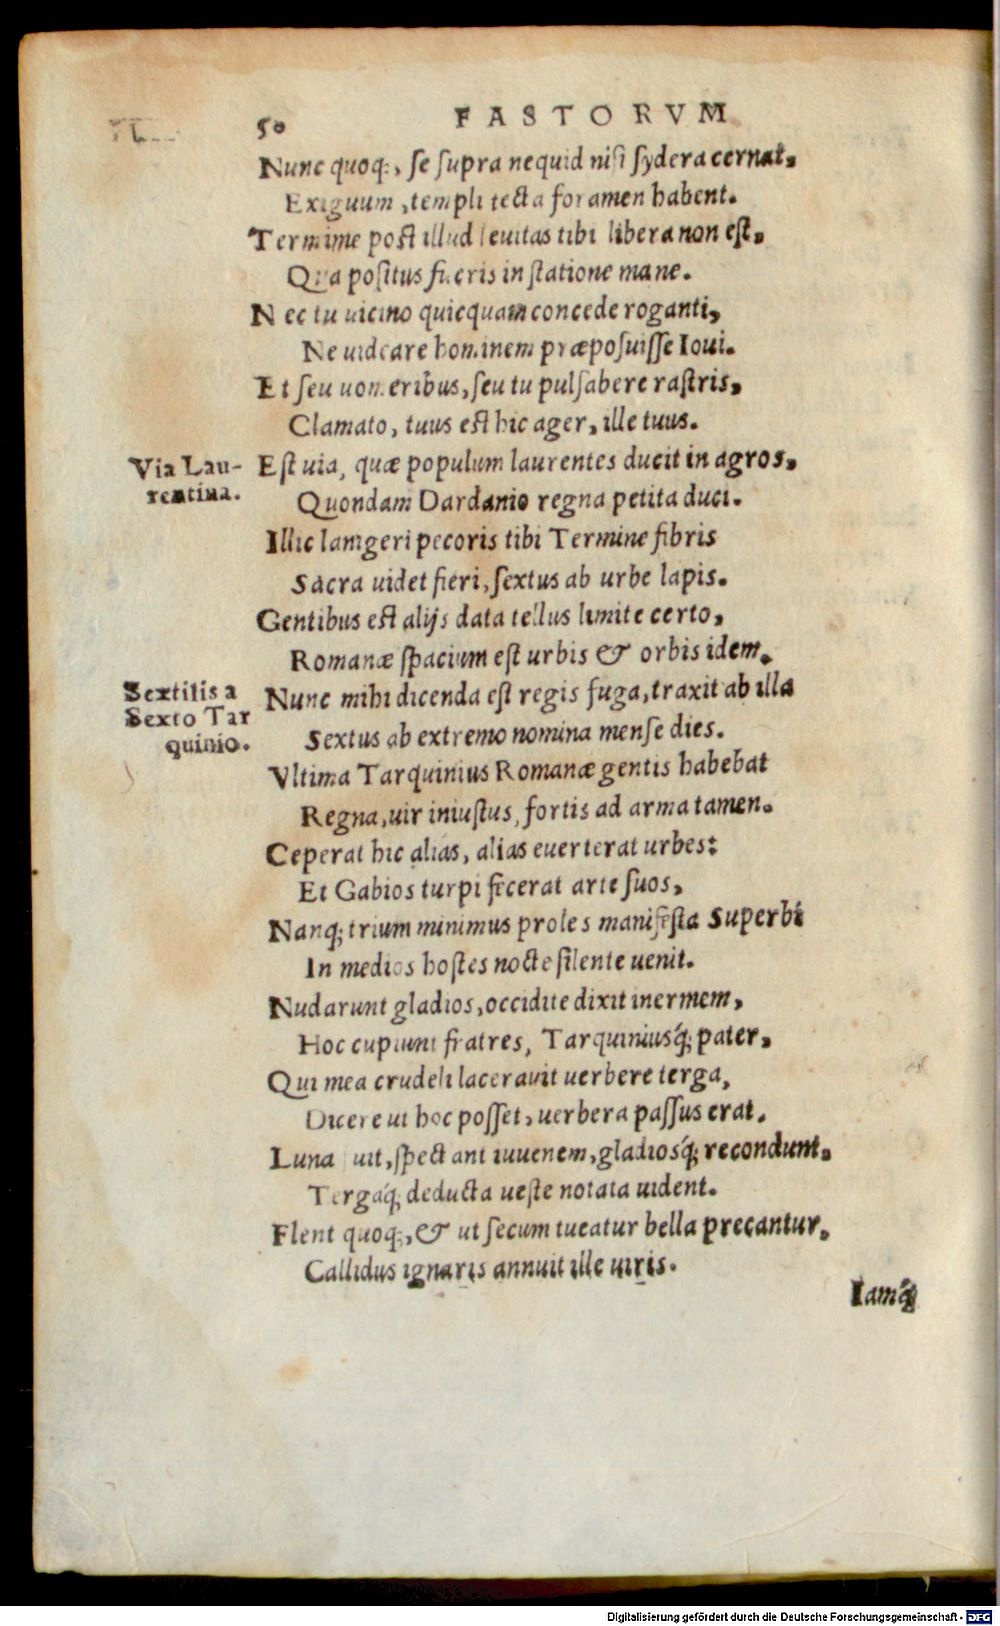 50 FASTORVM
Nunc quoq;, se supra nequid nisi sydera cernat,
Exiguum, templi tecta foramen habent.
Termine post illud leuitas tibi libera non est,
Qua positus fueris in statione mane.
Nec tu uicino quicquam concede roganti,
Ne uideare hominem præposuisse Ioui.
Et seu uomeribus, seu tu pulsabere rastris,
Clamato, tuus est hic ager, ille tuus.
Via Lau-
rentina.
Est uia, quæ populum laurentes ducit in agros,
Quondam Dardanio regna petita duci.
Illic lanigeri pecoris tibi Termine fibris
Sacra uidet fieri, sextus ab urbe lapis.
Gentibus est alijs data tellus limite certo,
Romanæ spacium est urbis & orbis idem.
Sextilis a
Sexto Tar
quinio.
Nunc mihi dicenda est regis fuga, traxit ab illa
Sextus ab extremo nomina mense dies.
Vltima Tarquinius Romanæ gentis habebat
Regna, uir iniustus, fortis ad arma tamen.
Ceperat hic alias, alias euerterat urbes:
Et Gabios turpi fecerat arte suos,
Nanq; trium minimus proles manifesta Superbi
In medios hostes nocte silente uenit.
Nudarunt gladios, occidite dixit inermem,
Hoc cupiunt fratres, Tarquiniusq́; pater,
Qui mea crudeli lacerauit uerbere terga,
Dicere ut hoc posset, uerbera passus erat.
Luna uit, spectant iuuenem, gladiosq́; recondunt,
Tergaq́; deducta ueste notata uident.
Flent quoq;, & ut secum tueatur bella precantur,
Callidus ignaris annuit ille uiris.
Iamq́;
Digitalisierung gefördert durch die Deutsche Forschungsgemeinschaft - DFG